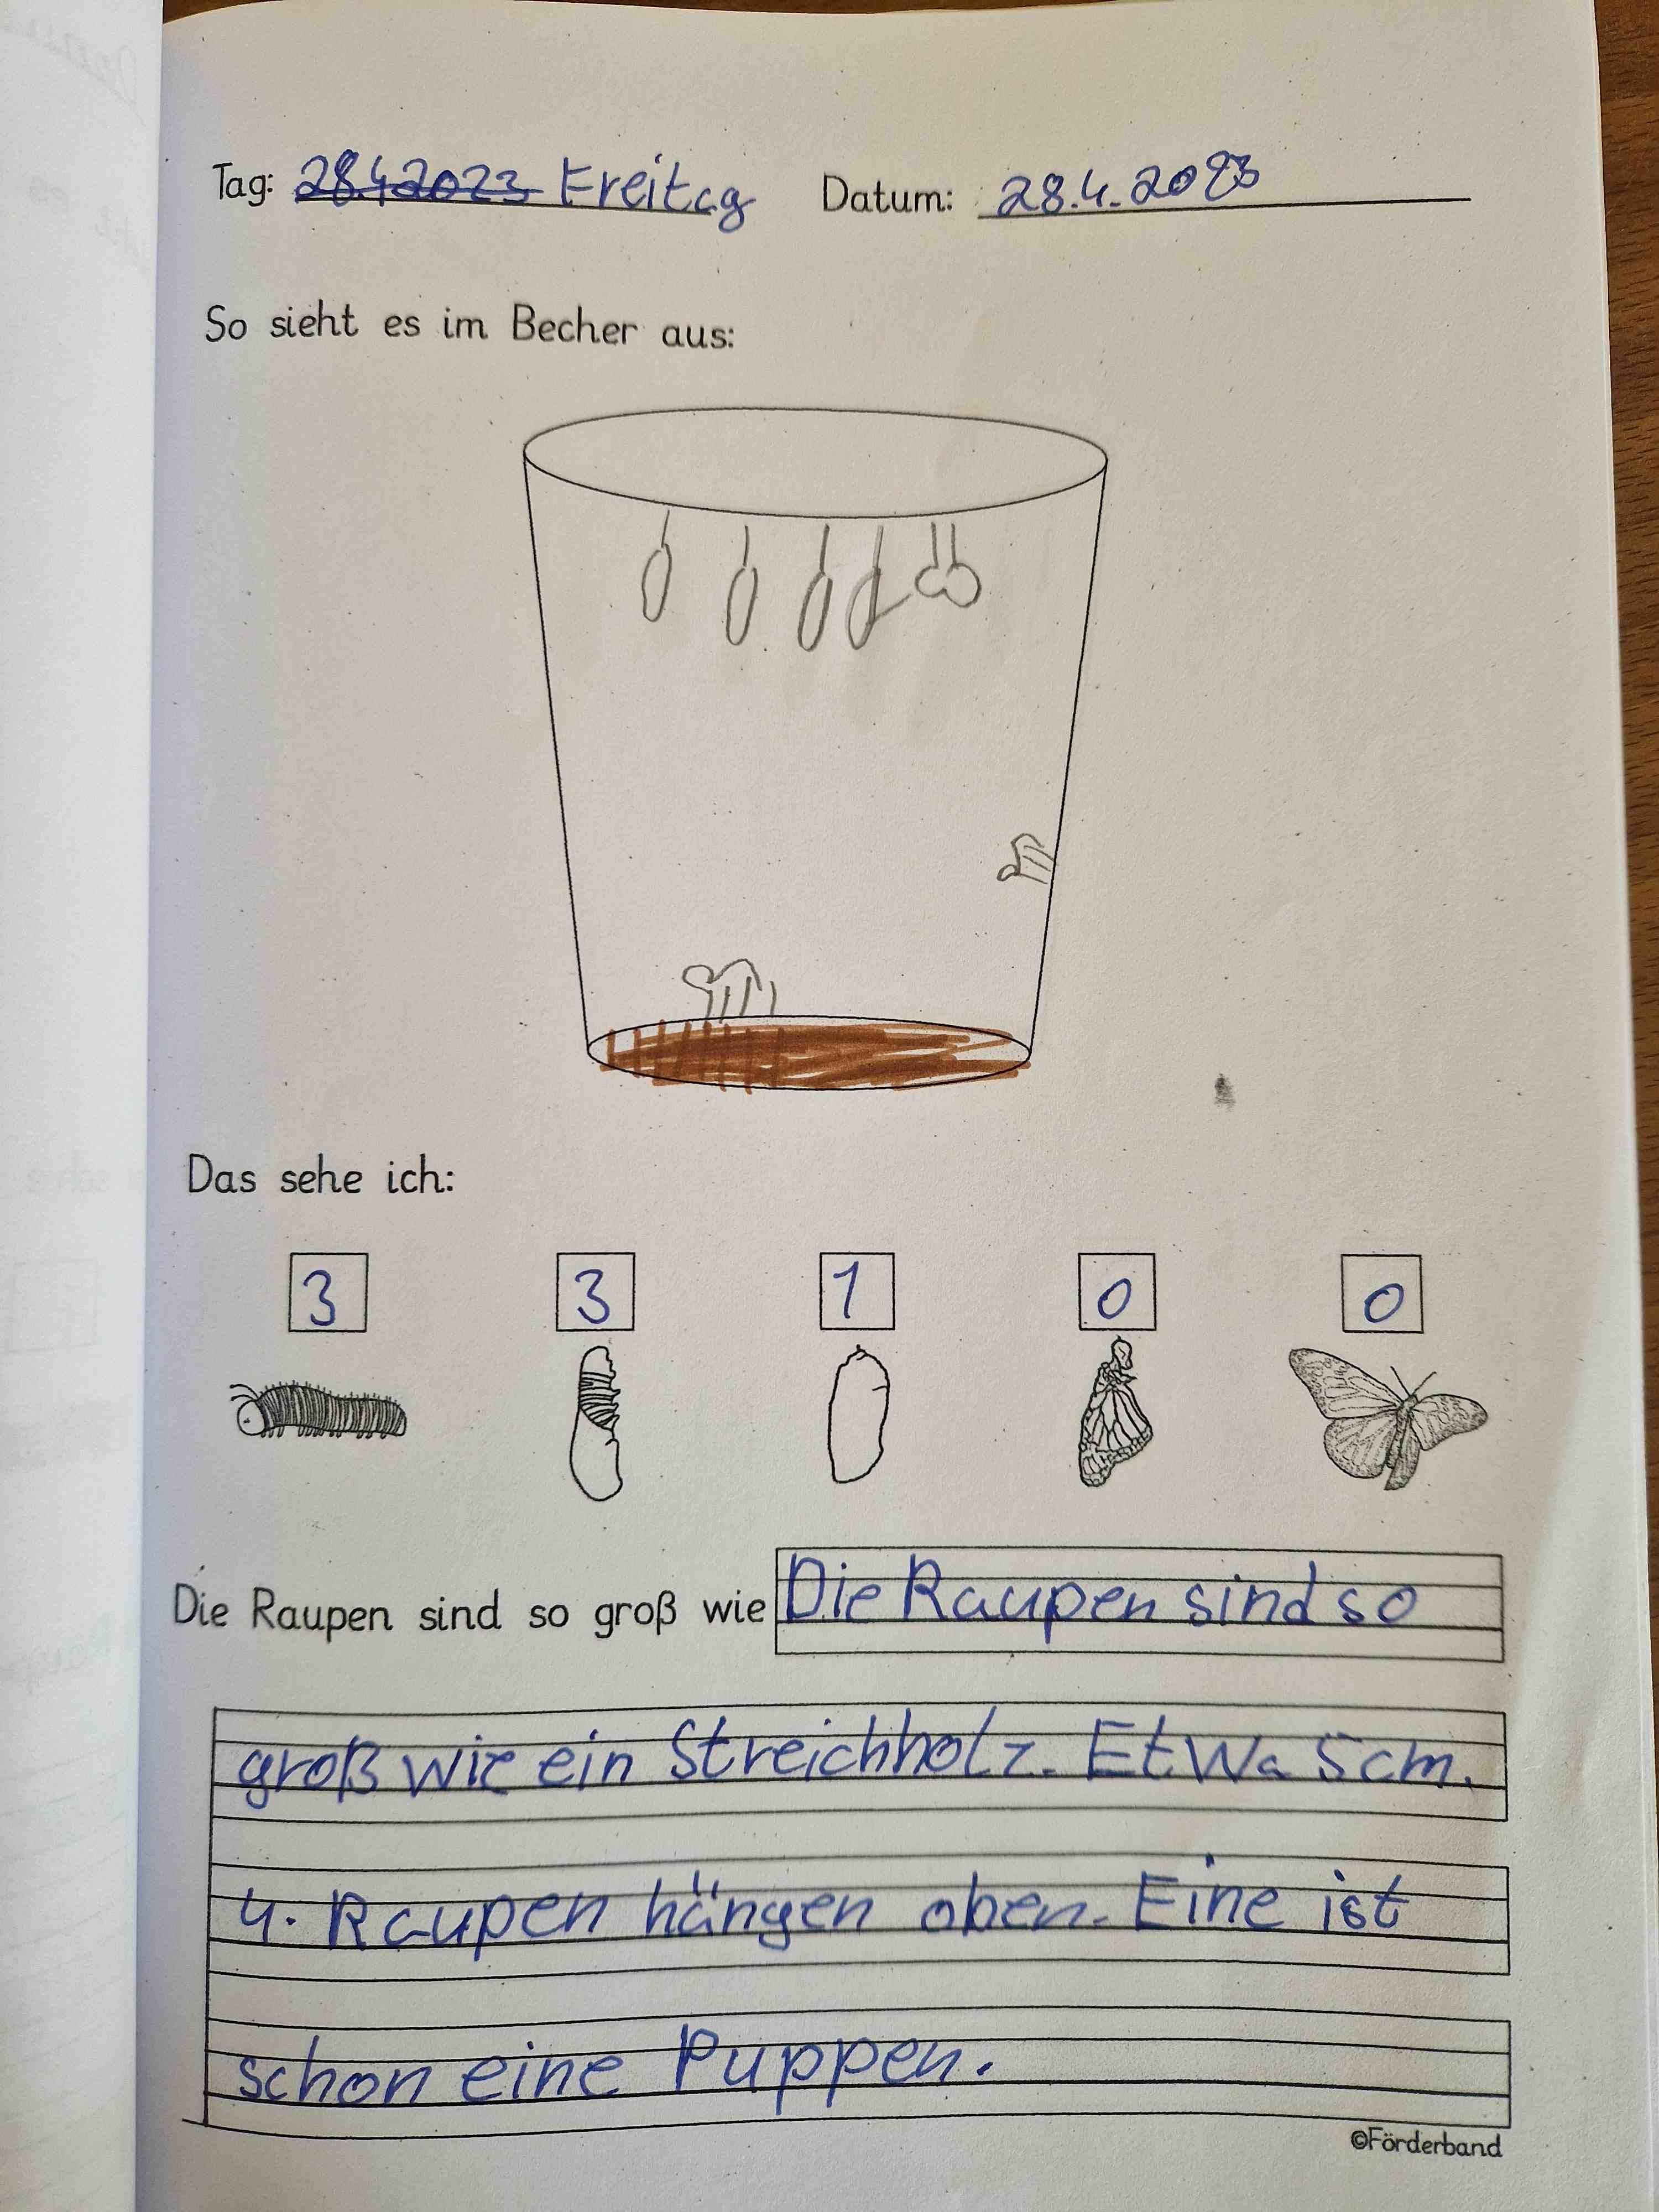 Tag: 28.4.2023 Freitag Datum: 28.4.2023
So sieht es im Becher aus:
Das sehe ich:
3 3 1 0 0
Die Raupen sind so groß wie Die Raupen sind so
groß wie ein Streichholz. Etwa 5cm.
4. Raupen hängen oben. Eine ist
schon eine Puppen.
©Förderband